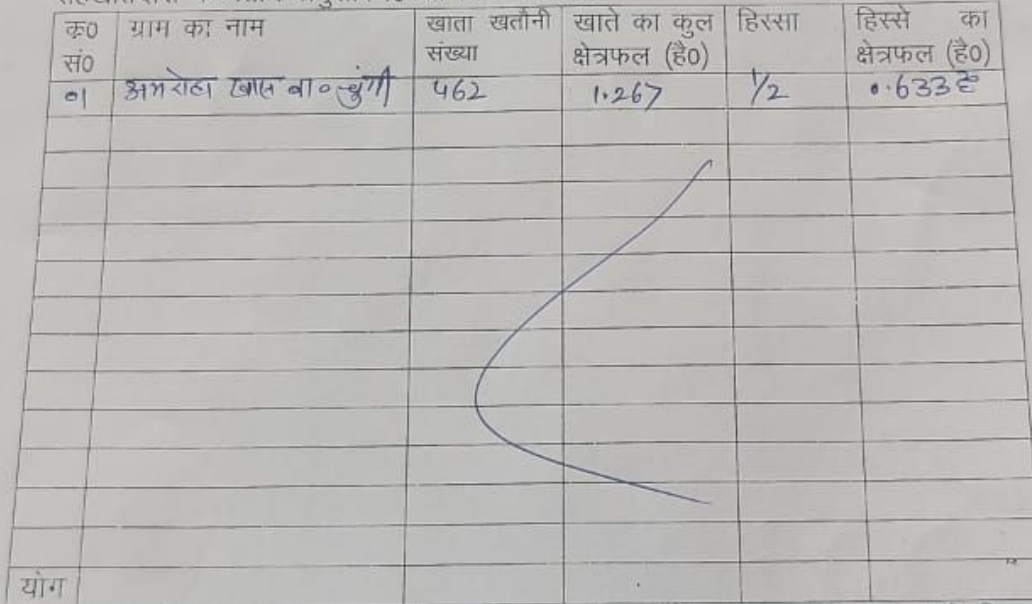 क्र0 सं0 ग्राम का नाम खाता खतौनी संख्या खाते का कुल क्षेत्रफल (है0) हिस्सा हिस्से का क्षेत्रफल (है0)
01 अमरोहा खास बा० चुंगी 462 1.267 1/2 0.633 है
योग